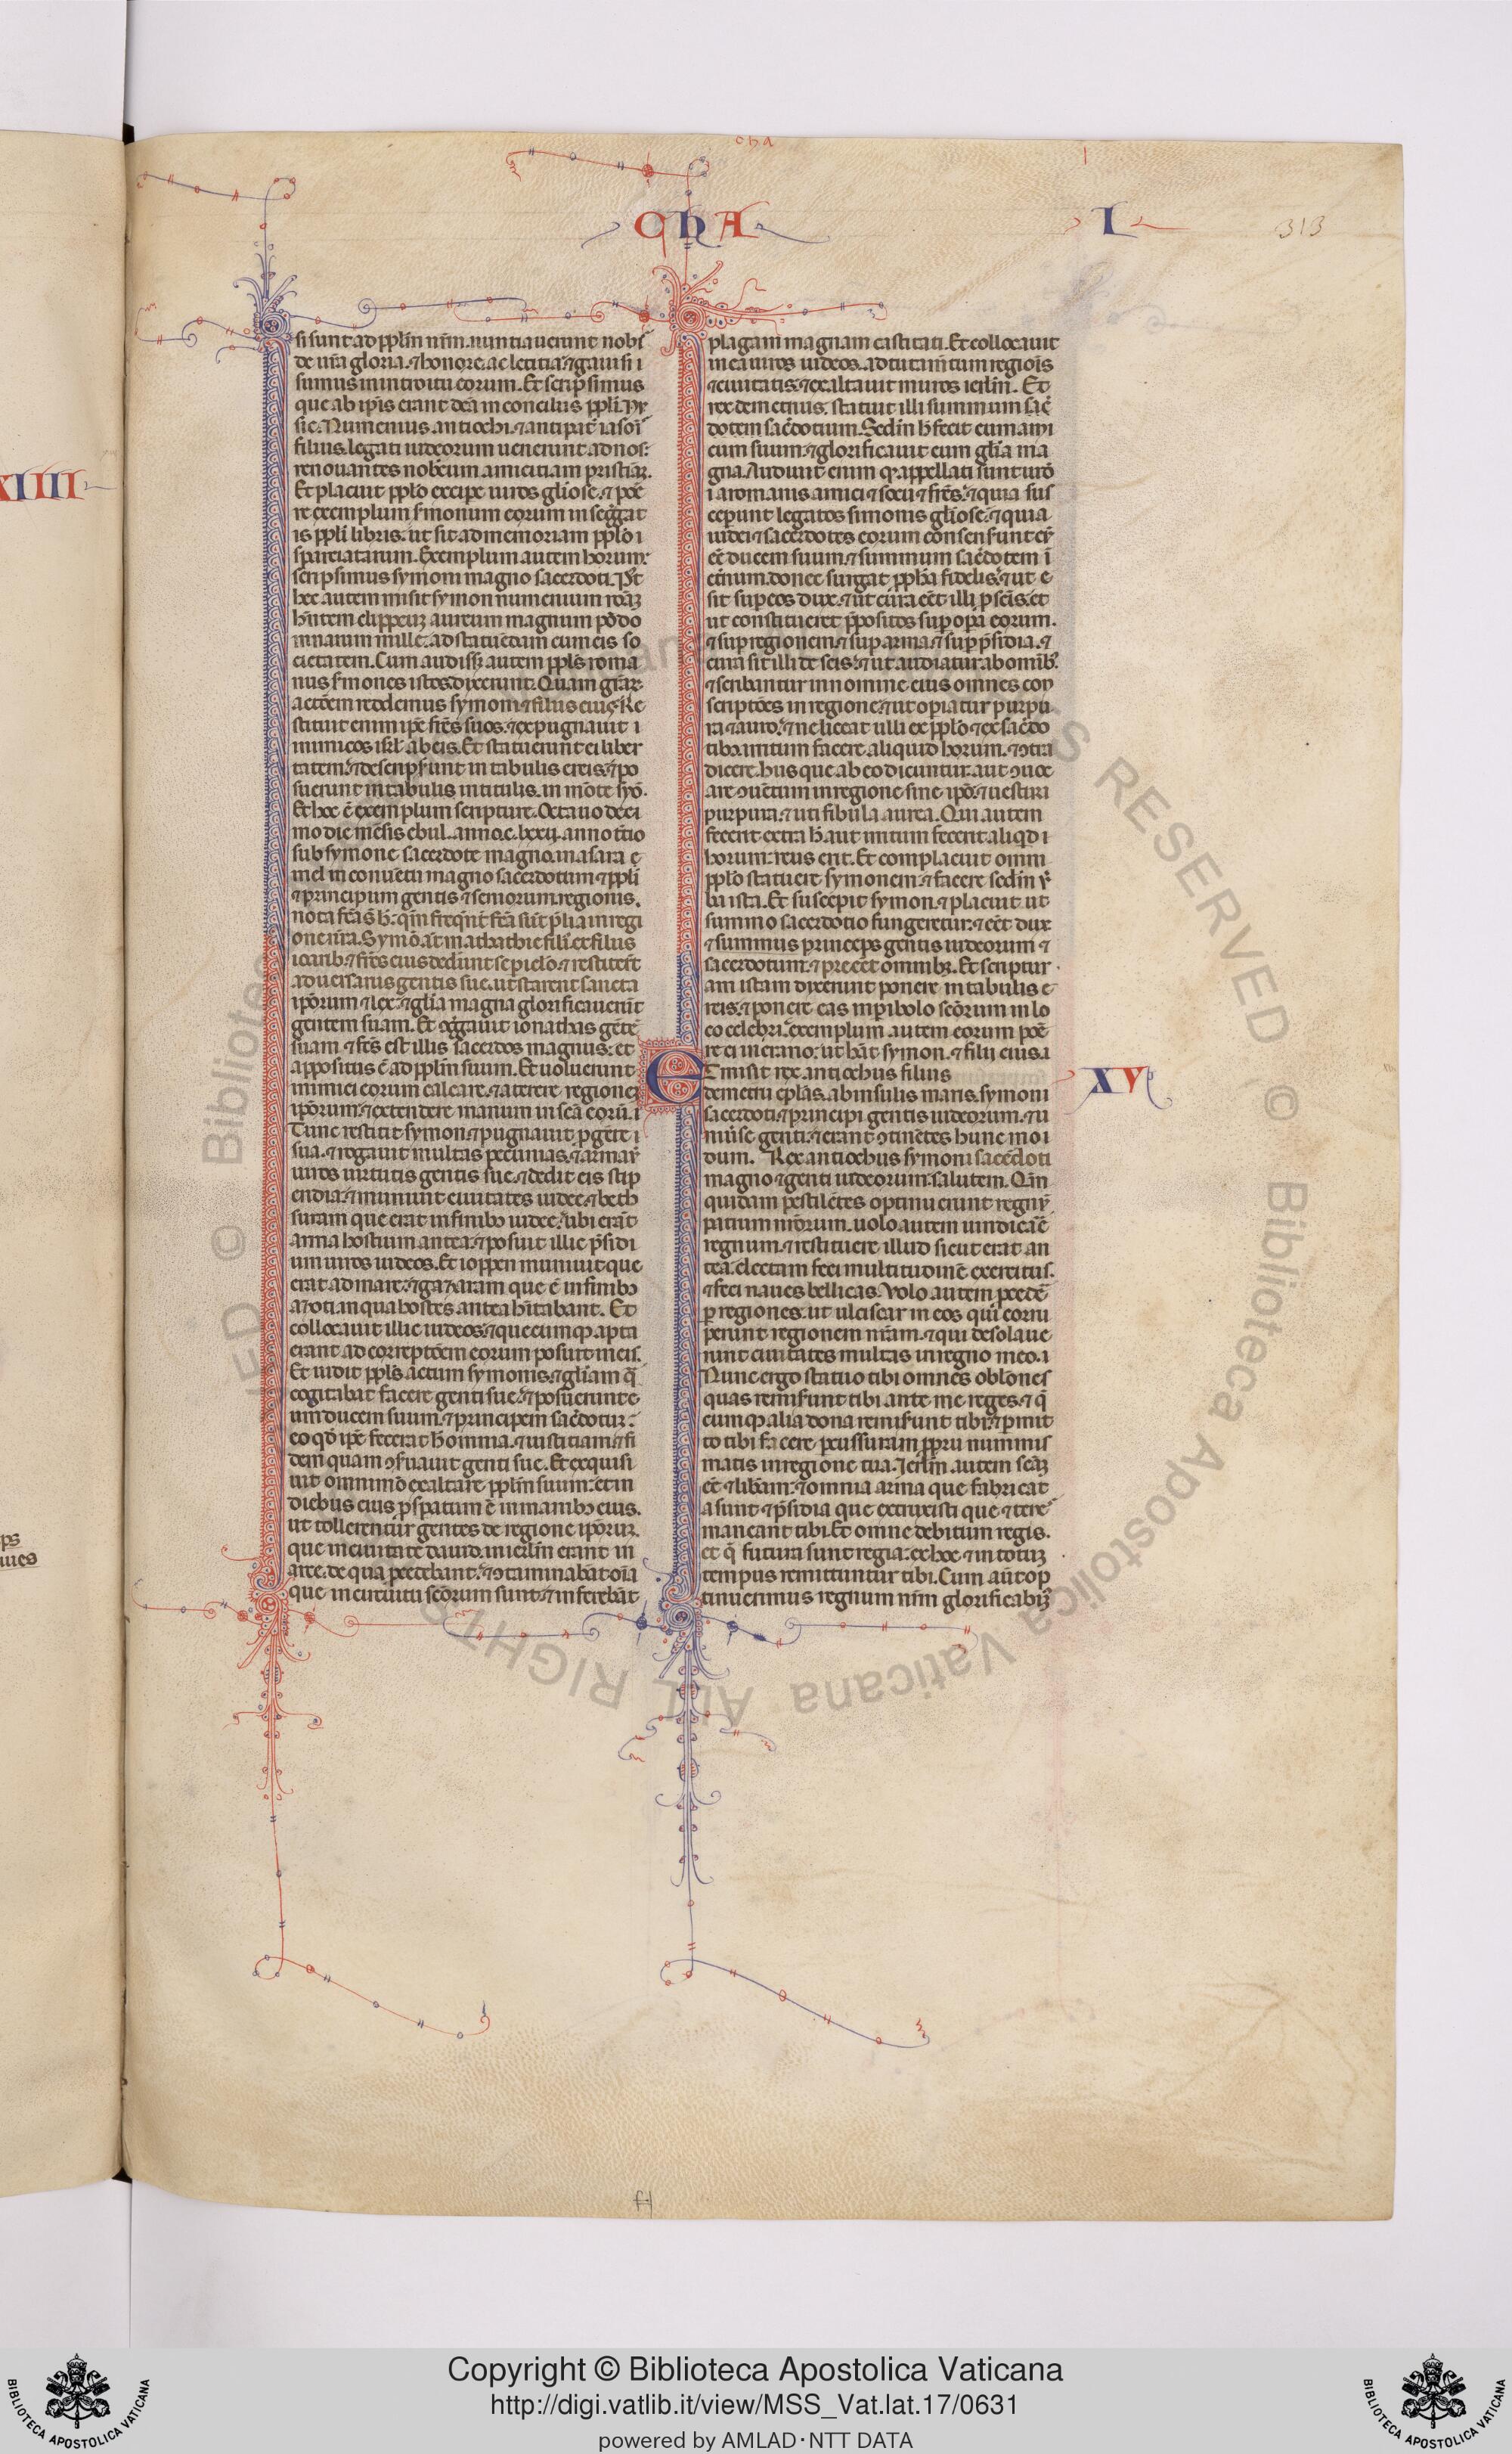 cha
CHA
I
313
XIIII
si sunt ad pplm nrm. nuntiauerunt nobis
de ura gloria. ⁊ honore. ac letitia. ⁊ gauisi i
sumus in introitu eorum. Et scripsimus
que ab ipis erant dca in conciliis ppli. Hr
sic. Numenius antiochi. ⁊ antipat iasois
filius. legati iudeorum uenerunt ad nos:
renouantes nobcum amicitiam pristinā.
Et placuit pplo excipe uiros gliose. ⁊ pone
re exemplum smonum eorum in seggat
is ppli libris. ut sit ad memoriam pplo i
sparciatarum. Exemplum autem horum:
scripsimus symoni magno sacerdoti. Post
hec autem misit symon numenium romā
hntem clippeum aureum magnum pōdo
mnarum mille. ad statuēdam cum eis so
cietatem. Cum audisset autem ppls roma
nus smones istos. dixerunt. Quam grāꝝ
actōem reddemus symoni ⁊ filiis eius. Re
stituit enim ipe frēs suos. ⁊ expugnauit i
inimicos isrl ab eis. Et statuerunt ei liber
tatem. ⁊ descripserunt in tabulis ereis. ⁊ po
suerunt in tabulis in titulis. in mōte syō.
Et hec ē exemplum scripture. Octauo deci
mo die mēsis ebul. anno .c. lxxij. anno tcio
sub symone sacerdote magno. in asara e
mel in conuētu magno sacerdotum ⁊ ppli
⁊ principum gentis ⁊ seniorum regionis.
nota fca s h. qm freqnt fca sūt plia in regi
one nra. Symō at mathathie fili. ex filiis
iarib ⁊ frēs eius dedunt se piclo. ⁊ restitert
aduersariis gentis sue. ut starent sancta
ipōrum ⁊ lex. ⁊ glia magna glorificauerūt
gentem suam. Et cggauit ionathas gētē
suam ⁊ fcs est illis sacerdos magnus: et
appositus ē ad pplm suum. Et uoluerunt
inimici eorum calcare. ⁊ aterere regionē
ipōrum. ⁊ extendere manum in scā corū. i
Tunc restitit symon ⁊ pugnauit p gēte i
sua. ⁊ erogauit multas pecunias. ⁊ armau
uiros uirtutis gentis sue. ⁊ dedit eis stip
endia. ⁊ muniuit ciuitates iudee. ⁊ beth
suram que erat in finibȝ iudee. ubi erāt
arma hostium antea. ⁊ posuit illic psidi
um uiros iudeos. Et ioppen muniuit que
erat ad mare. ⁊ gazaram que ē in finibȝ
azoti. in qua hostes antea hitabant. Et
collocauit illic iudeos. ⁊ quecumqȝ apta
erant ad correptōem eorum posuit in eis.
Et uidit ppls actum symonis. ⁊ gliam quā
cogitabat facere genti sue. ⁊ posuerunt e
um ducem suum. ⁊ principem sacdotum:
eo qd ipe fecerat h omnia. ⁊ iustitiam ⁊ fi
dem quam ꝯsuauit genti sue. Et exquisi
uit omni mō exaltare pplm suum: et in
diebus eius pspatum ē in manibȝ eius.
ut tollerentur gentes de regione ipōrum.
que in ciuitate dauid. in ierlm erant in
arce. de qua pcedebant. ⁊ ꝯtaminabāt oīa
que in circuitu scōrum sunt. ⁊ inferebāt
plagam magnam castitati. Et collocauit
in ea uiros iudeos. ad tutamtum regiois
⁊ ciuitatis. ⁊ exaltauit muros ierlm. Et
rex demetrius. statuit illi summum sac
dotem sacdotium. Scdm h fecit eum ami
cum suum. ⁊ glorificauit eum glia ma
gna. Audiuit enim q appellati sunt iudē
i a romanis amici ⁊ socii ⁊ frēs. ⁊ quia sus
ceperunt legatos simonis gliose. ⁊ quia
iudei ⁊ sacerdotes eorum consenserunt eū
ēē ducem suum. ⁊ summum sacdotem i
etnum. donec surgat ppha fidelis. ⁊ ut e
sit sup eos dux. ⁊ ut cura eēt illi p scis. et
ut constitueret ppositos sup opa eorum.
⁊ sup regionem. ⁊ sup arma. ⁊ sup psidia. ⁊
cura sit illi de scis. ⁊ ut audiatur ab omībȝ
⁊ scribantur in nomine eius omnes con
scriptōes in regione. ⁊ ut opiatur purpu
ra ⁊ auro. ⁊ ne liceat ulli ex pplo ⁊ ex sacdo
tibȝ irritum facere aliquid horum. ⁊ ꝯtra
dicere. hiis que ab eo dicuntur. aut ꝯuoc
are ꝯuētum in regione sine ipo. ⁊ uestiri
purpura. ⁊ uti fibula aurea. Qui autem
fecerit extra h. aut irritum fecerit aliqd i
horum: reus erit. Et complacuit omni
pplo statuere symonem. ⁊ facere scdm u
ba ista. Et suscepit symon. ⁊ placuit ut
summo sacerdotio fungeretur. ⁊ eēt dux
⁊ summus princeps gentis iudeorum ⁊
sacerdotum. ⁊ preeēt omnibȝ. Et scriptur
am istam dixerunt ponere in tabulis e
reis. ⁊ ponere eas in pibolo scōrum in lo
co celebri. exemplum autem eorum ponē
re in erario: ut hāt symon. ⁊ filii eius. i
ET misit rex antiochus filius
demetrii eplas. ab insulis maris. symoni
sacerdoti. ⁊ principi gentis iudeorum. ⁊ u
niuse genti. ⁊ erant ꝯtinētes hunc mo i
dum. Rex antiochus symoni sacedoti
magno ⁊ genti iudeorum: salutem. Qm
quidam pestilētes optinuerunt regnum
patrum nrōrum. uolo autem uindicare
regnum. ⁊ restituere illud sicut erat an
tea. electam feci multitudinē exercitus.
⁊ feci naues bellicas. Volo autem pcede
p regiones. ut ulciscar in eos qui corru
perunt regionem nram. ⁊ qui desolaue
runt ciuitates multas in regno meo. i
Nunc ergo statuo tibi omnes oblones
quas remiserunt tibi ante me reges. ⁊ q
cumqȝ alia dona remiserunt tibi. ⁊ pmit
to tibi facere pcussuram pprii numis
matis in regione tua. Ierlm autem scām
ēē ⁊ libam. ⁊ omnia arma que fabricat
a sunt ⁊ psidia que extruxisti que ⁊ tene
maneant tibi. Et omne debitum regis.
et q futura sunt regia: ex hoc ⁊ in totum
tempus remittuntur tibi. Cum aut op
tinuerimus regnum nrm glorificabimȝ
XV
Copyright © Biblioteca Apostolica Vaticana
http://digi.vatlib.it/view/MSS_Vat.lat.17/0631
powered by AMLAD·NTT DATA
BIBLIOTECA APOSTOLICA VATICANA
BIBLIOTECA APOSTOLICA VATICANA